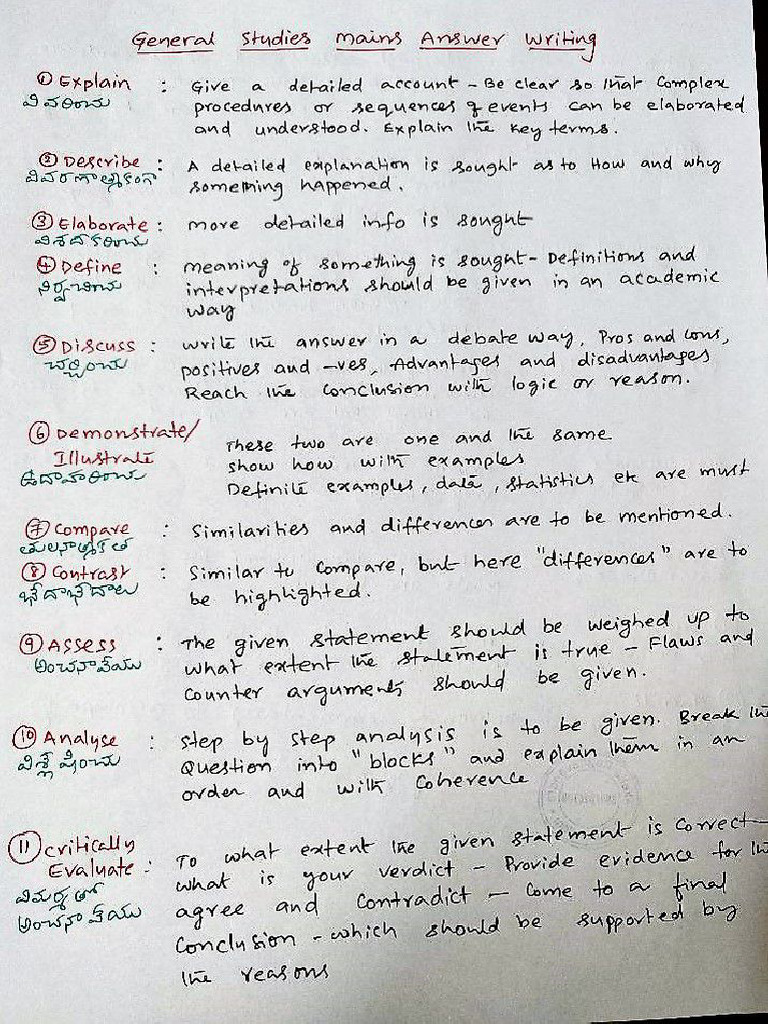 General Studies Mains Answer Writing
① Explain : Give a detailed account - Be clear so that complex
వివరించు procedures or sequences of events can be elaborated
and understood. Explain the key terms.
② Describe : A detailed explanation is sought as to How and why
వివరణాత్మకంగా something happened.
③ Elaborate : more detailed info is sought
విశదీకరించు
④ Define : meaning of something is sought - Definitions and
నిర్వచించు interpretations should be given in an academic
way
⑤ Discuss : write the answer in a debate way, Pros and Cons,
చర్చించు positives and -ves, Advantages and disadvantages
Reach the conclusion with logic or reason.
⑥ Demonstrate/ These two are one and the same
Illustrate show how with examples
ఉదాహరించు Definite examples, data, statistics etc are must
⑦ Compare : Similarities and differences are to be mentioned.
తులనాత్మకత
⑧ Contrast : Similar to compare, but here "differences" are to
భేదాభేదాలు be highlighted.
⑨ Assess : The given statement should be weighed up to
అంచనావేయు what extent the statement is true - Flaws and
counter arguments should be given.
⑩ Analyse : step by step analysis is to be given. Break the
విశ్లేషించు Question into "blocks" and explain them in an
order and with coherence
⑪ critically To what extent the given statement is correct
Evaluate : what is your verdict - Provide evidence for the
విమర్శతో agree and contradict - Come to a final
అంచనావేయు Conclusion - which should be supported by
the reasons